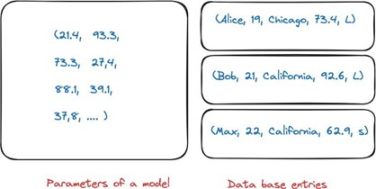 (21.4, 93.3,
73.3, 27,4,
88.1, 39.1,
37,8, .... )
(Alice, 19, Chicago, 73.4, L)
(Bob, 21, California, 92.6, L)
(Max, 22, California, 62.9, s)
Parameters of a model
Data base entries